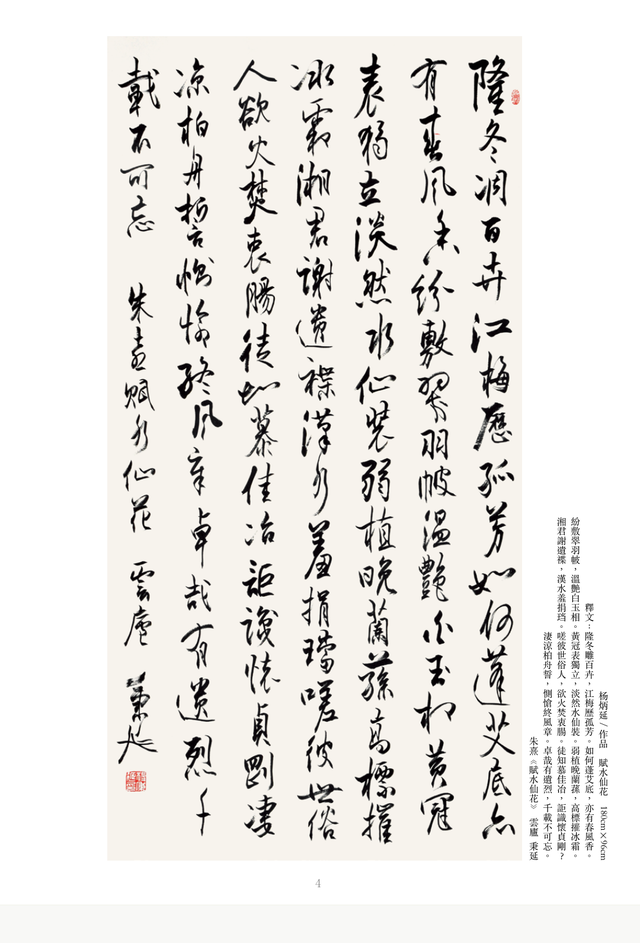 隆冬凋百卉江梅歷孤芳如何蓬艾底亦
有春風香紛敷翠羽帔溫艷白玉相黃冠
表獨立淡然水仙裝弱植晚蘭蓀高標摧
冰霜湘君謝遺褋漢水羞捐璫嗟彼世俗
人欲火焚衷腸徒知慕佳冶詎識懷貞剛淒
凉柏舟誓惻愴終風章卓哉有遺烈千
載不可忘 朱熹賦水仙花 雲廬 秉延
杨炳延/作品 賦水仙花 180cm×96cm
釋文：隆冬雕百卉，江梅歷孤芳。如何蓬艾底，亦有春風香。
紛敷翠羽帔，溫艷白玉相。黃冠表獨立，淡然水仙裝。弱植晚蘭蓀，高標摧冰霜。
湘君謝遺褋，漢水羞捐珰。嗟彼世俗人，欲火焚衷腸。徒知慕佳冶，詎識懷貞剛？
淒涼柏舟誓，惻愴終風章。卓哉有遺烈，千載不可忘。
朱熹《賦水仙花》 雲廬 秉延
4